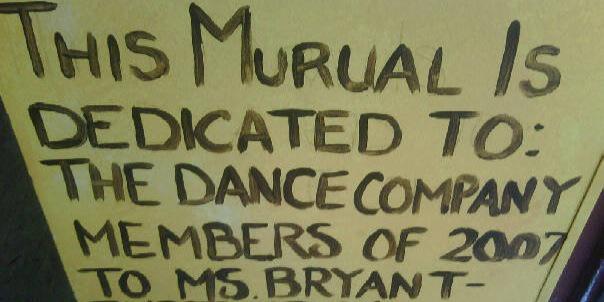 THIS MURUAL IS
DEDICATED TO:
THE DANCE COMPANY
MEMBERS OF 2007
TO MS. BRYANT-